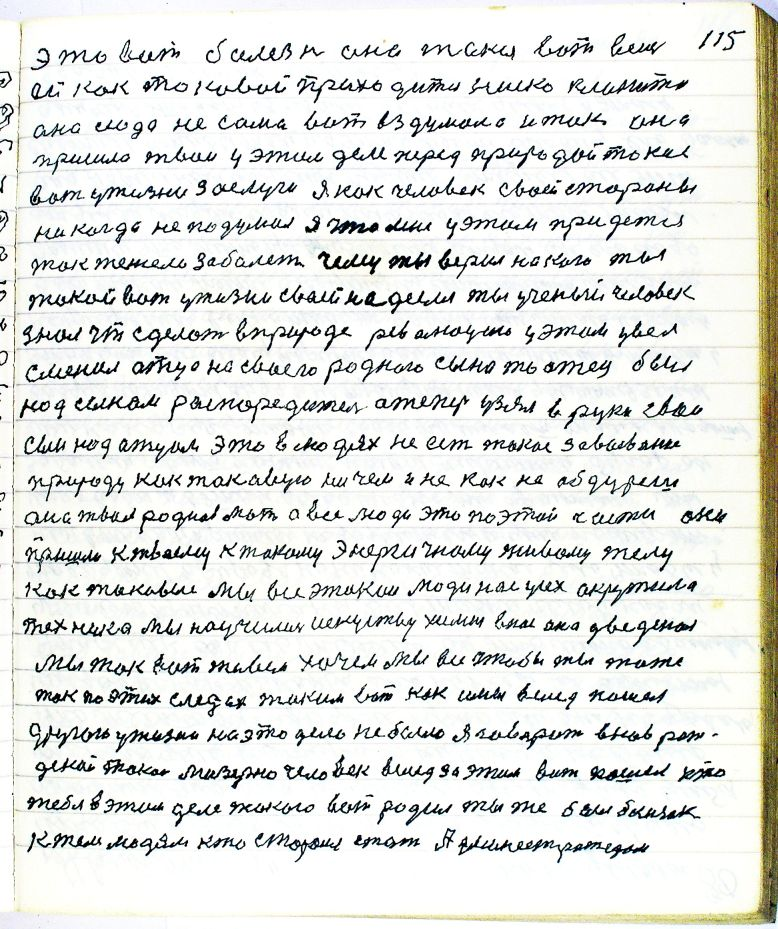 115
это вот болезн она такая вот веш
ей как токовой прихо дится ниско кланится
она сюда не сама вот вздумала и так она
пришла твои у этом деле перед природой такие
вот ужизни заслуги я как человек своей стораны
никогда неподумал я что мне уэтом придется
так тежело заболеть чему ты верил накого ты
такой вот ужизни своей надеелся ты ученый человек
знал чть сделать вприроде революцию уэтом увел
сменил отца насвоего родного сына то отец был
над сынам распоредител атепер узял в руки свои
сын надатцом это влюдях не ест такое завоевание
природу кактакавую ничем и не как не абдуреш
она твоя родная мать а все люди это поэтой части они
пришли ктвоему ктакому Энергичному живому телу
как таковые мы все этакои люди нас усех акружила
техника мы научились искуству химия внас она уведеная
мы так вот живем хочем мы все чтобы ты тоже
так поэтих следах таким вот как и мы вслед пошел
другого ужизни наэто дело небыло я говарит внов рож-
деной такой мизерно человек вслед заэтим вот пошел кто
тебя вэтом деле такого вот родил ты же был близок
ктем людям кто старался стать Администратором